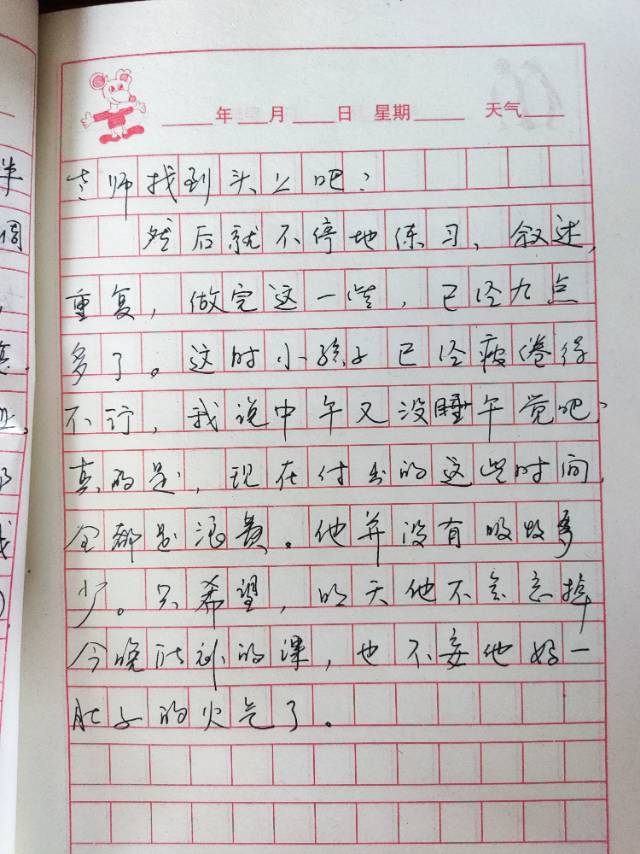 ____年___月____日 星期_____ 天气____
老师找到头上吧?
然后就不停地练习,叙述,
重复,做完这一些,已经九点
多了。这时小孩子已经疲倦得
不行,我说中午又没睡午觉吧?
真的是,现在付出的这些时间,
全都是浪费。他并没有吸收多
少。只希望,明天他不会忘掉
今晚所补的课,也不妄他妈一
肚子的火气了。